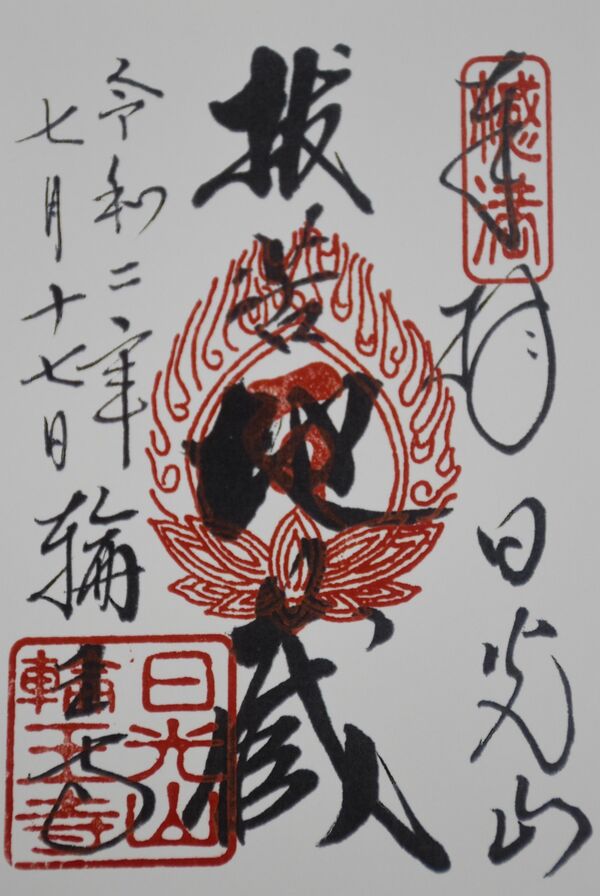 奉拝 日光山
憾満
拔苦地蔵
令和二年
七月十七日
輪王寺
日光山
輪王寺